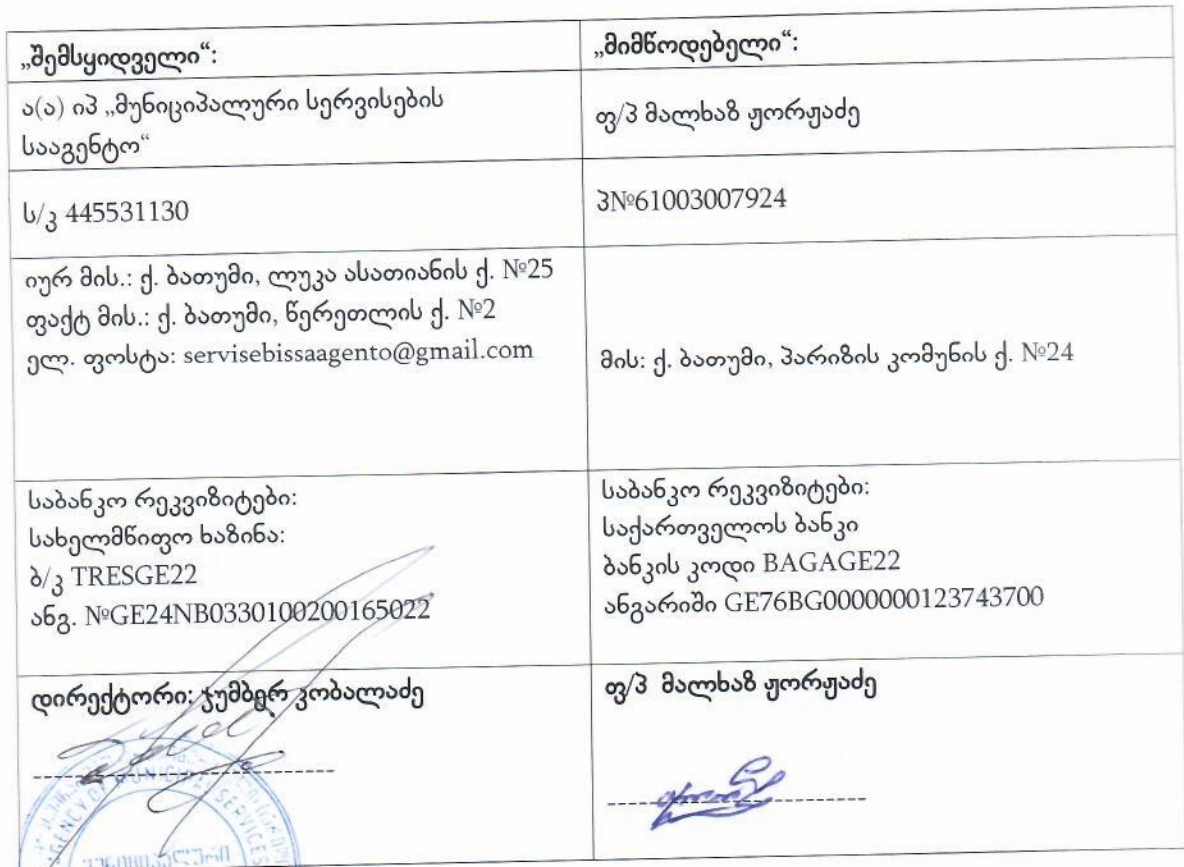 „შემსყიდველი“:
„მიმწოდებელი“:
ა(ა) იპ „მუნიციპალური სერვისების
სააგენტო“
ფ/პ მალხაზ ჟორჟაძე
ს/კ 445531130
პ№61003007924
იურ მის.: ქ. ბათუმი, ლუკა ასათიანის ქ. №25
ფაქტ მის.: ქ. ბათუმი, წერეთლის ქ. №2
ელ. ფოსტა: servisebissaagento@gmail.com
მის: ქ. ბათუმი, პარიზის კომუნის ქ. №24
საბანკო რეკვიზიტები:
სახელმწიფო ხაზინა:
ბ/კ TRESGE22
ანგ. №GE24NB0330100200165022
საბანკო რეკვიზიტები:
საქართველოს ბანკი
ბანკის კოდი BAGAGE22
ანგარიში GE76BG0000000123743700
დირექტორი: ჯუმბერ კობალაძე
ფ/პ მალხაზ ჟორჟაძე
AGENCY OF MUNICIPAL SERVICES